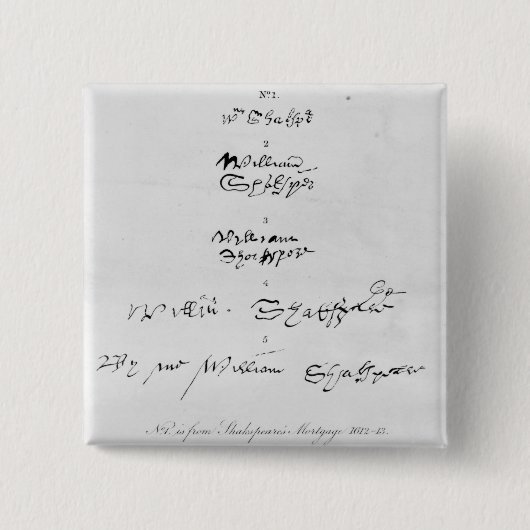 No. 1.
Wm Shakspe
2
William
Shakspe
3
William
Shakspere
4
Willm Shakspere
5
By me William Shakspeare
No. 1. is from Shakspeare's Mortgage 1612-13.